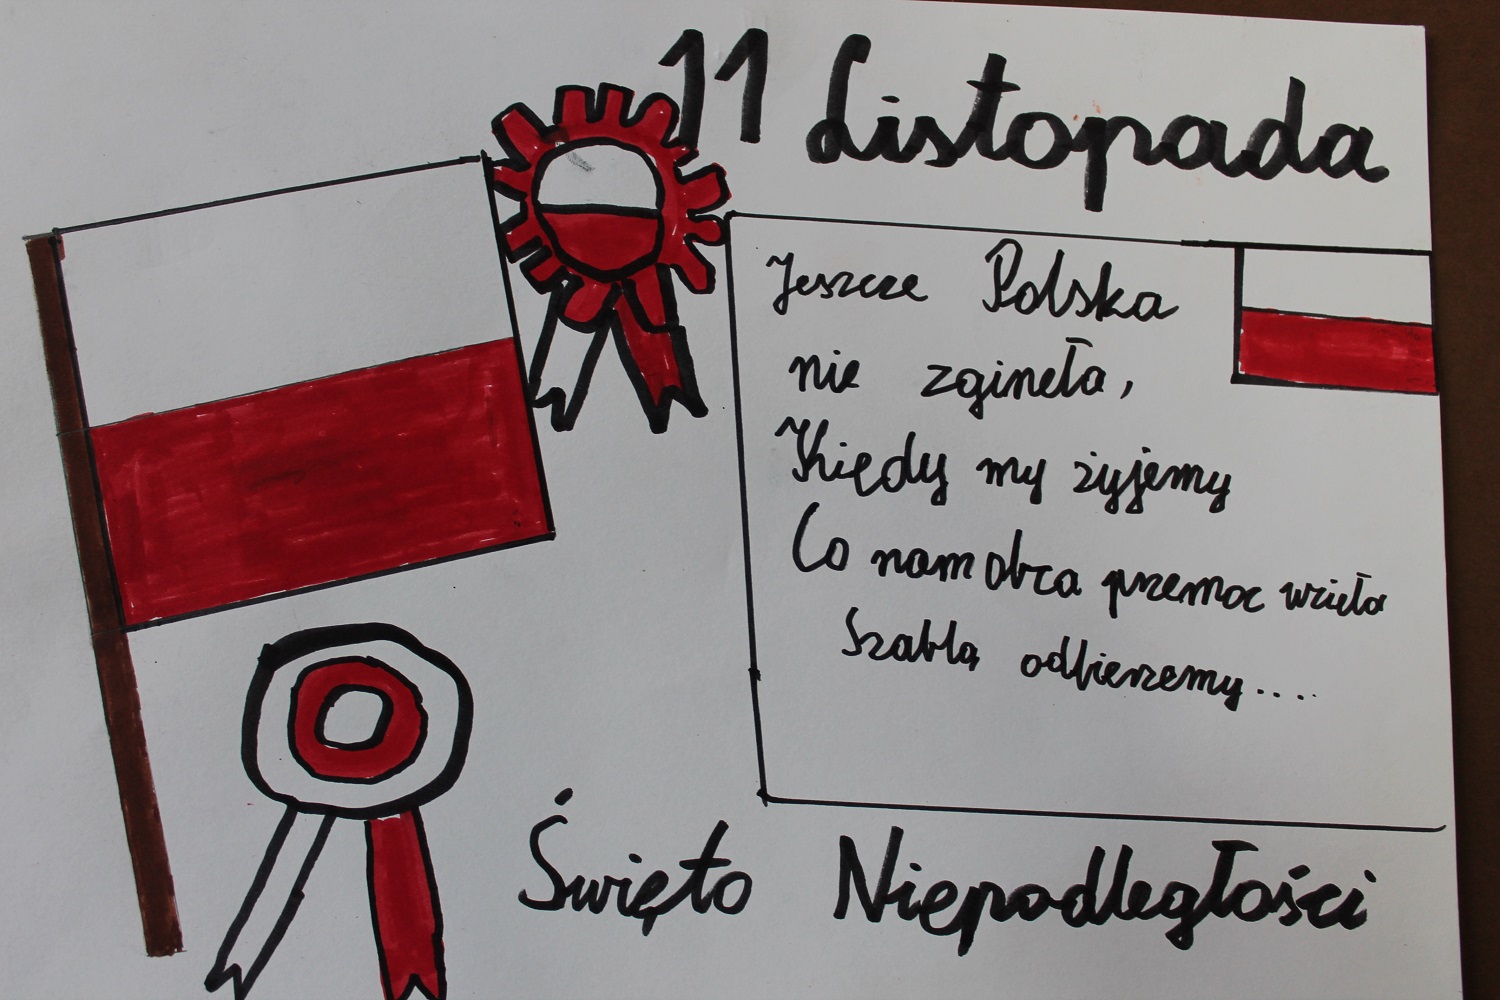 11 Listopada
Jeszcze Polska
nie zgineła,
Kiędy my żyjemy
Co nam obca przemoc wzieła
Szablą odbierzemy....
Święto Niepodległości